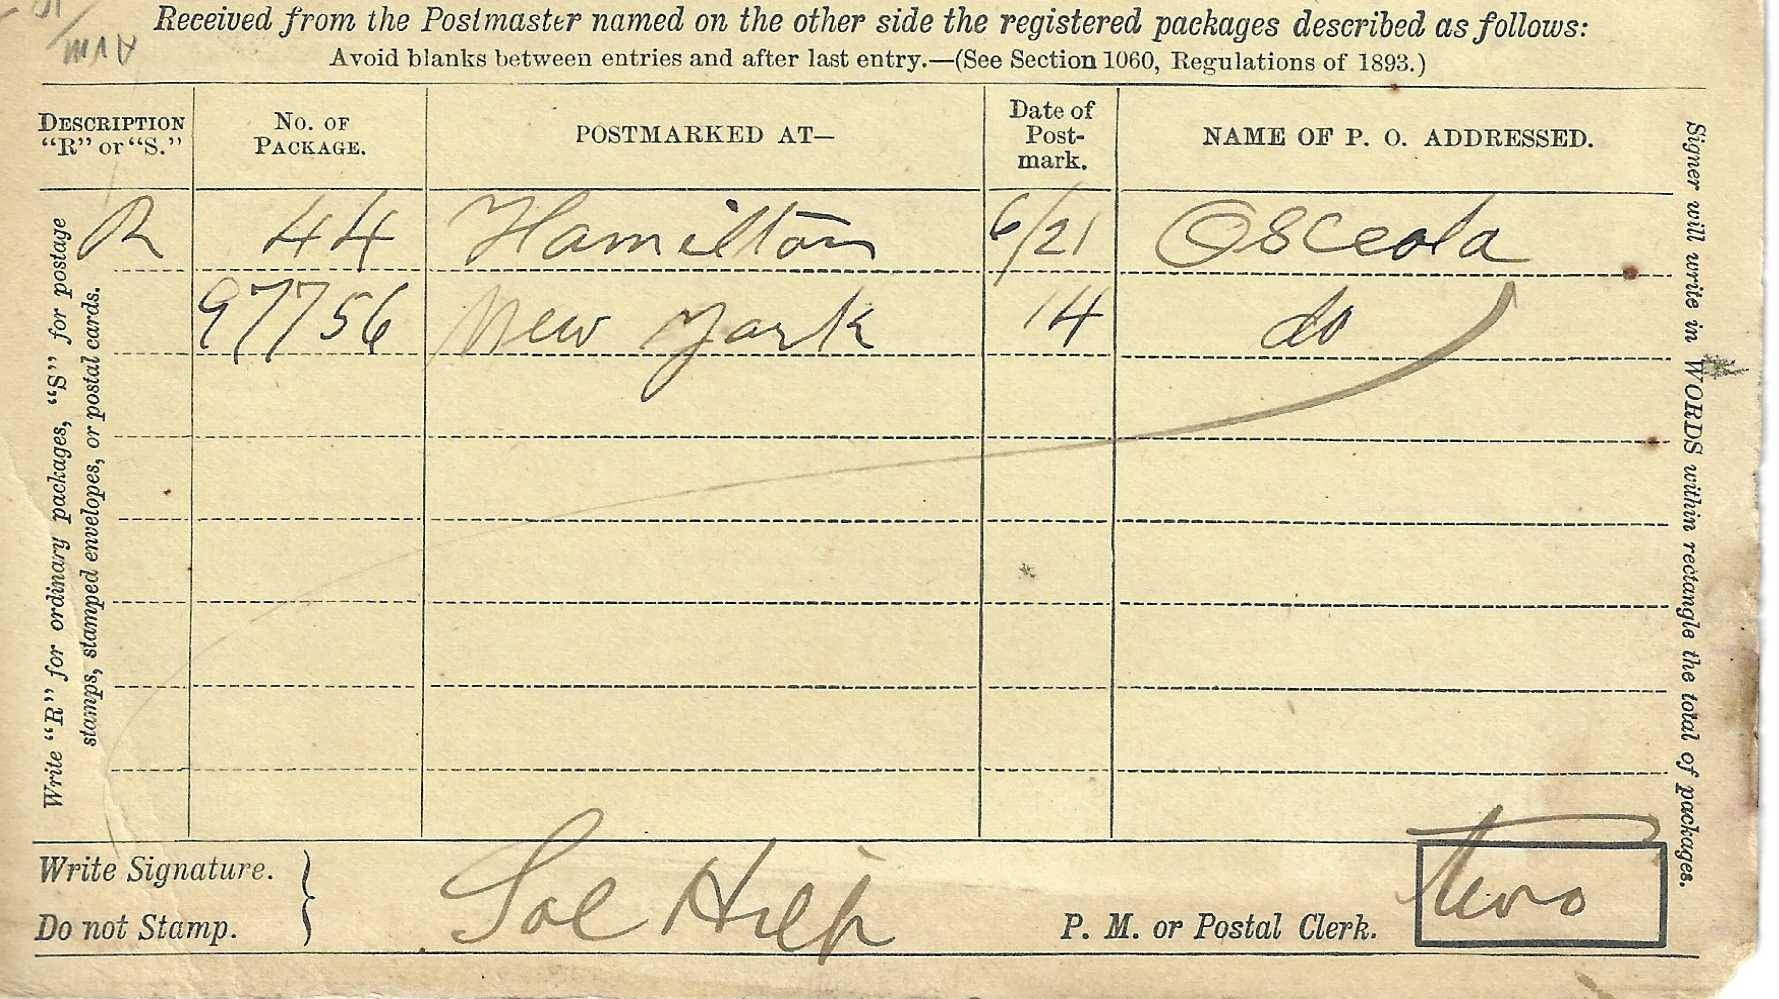 Received from the Postmaster named on the other side the registered packages described as follows:
Avoid blanks between entries and after last entry.—(See Section 1060, Regulations of 1893.)
DESCRIPTION "R" or "S." No. OF PACKAGE. POSTMARKED AT— Date of Post-mark. NAME OF P. O. ADDRESSED.
R 44 Hamilton 6/21 Osceola
97756 New York 14 do
Write "R" for ordinary packages, "S" for postage
stamps, stamped envelopes, or postal cards.
Signer will write in WORDS within rectangle the total of packages.
Write Signature. }
Do not Stamp.
Sol
P. M. or Postal Clerk.
Two